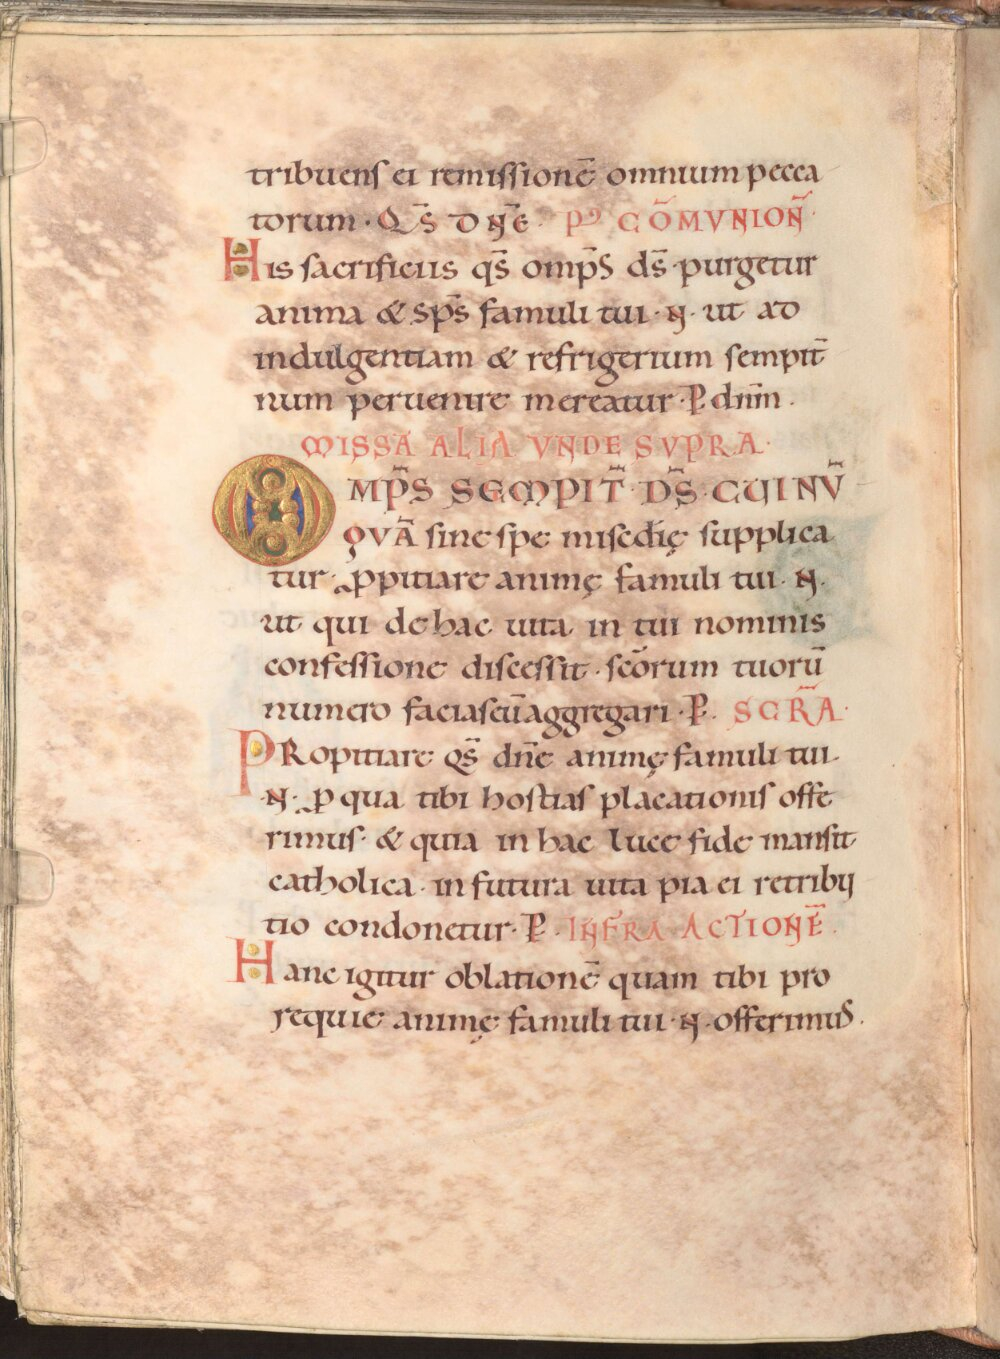 tribuens ei remissionē omnium pecca
torum · Q̄S DN̄E · P⁹ CŌMVNION̄ ·
His sacrificiis qs̄ omp̄s ds̄ · purgetur
anima & sp̄s famuli tui · N̄ · ut ad
indulgentiam & refrigerium sempit̄
num peruenire mereatur · P̱ dnm̄ .
MISSA ALIA VNDE SVPRA ·
OMP̄S SEMPIT̄ · DS̄ · CUI NV̄
QVĀ sine spe misedīę supplica
tur · ꝓpitiare animę famuli tui · N̄ ·
ut qui de hac uita in tui nominis
confessione discessit · scōrum tuorū
numero facias eū aggregari · P̱ . SCR̄A ·
PROpitiare qs̄ dnē animę famuli tui
· N̄ · ꝓ qua tibi hostias placationis offe
rimus · & quia in hac luce fide mansit
catholica · in futura uita pia ei retribu
tio condonetur · P̱ · INFRA ACTIONĒ ·
Hanc igitur oblationē quam tibi pro
requie animę famuli tui · N̄ · offerimus .